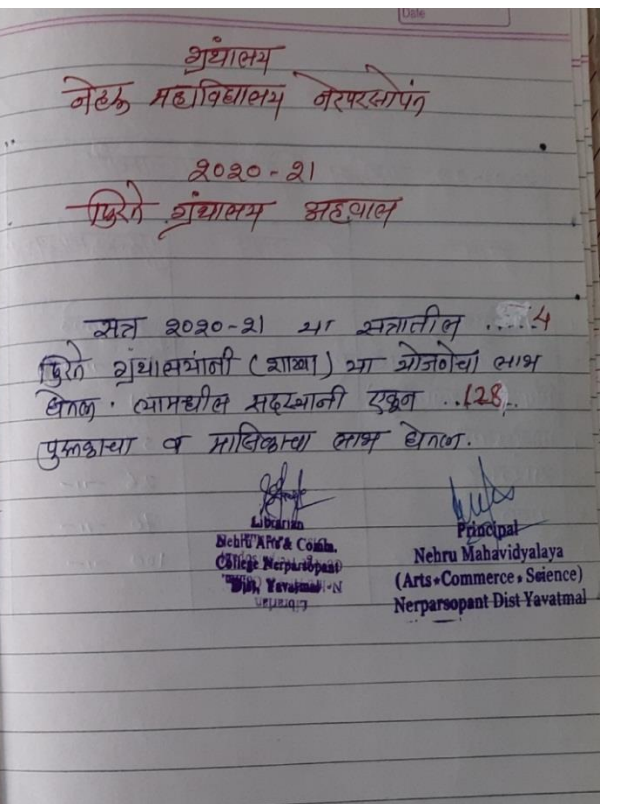 Date
ग्रंथालय
नेहरू महाविद्यालय नेरपरसोपंत
२०२०-२१
फिरते ग्रंथालय अहवाल
सत्र २०२०-२१ या सत्रातील .....4
फिरते ग्रंथालयांनी (शाखा) या योजनेचा लाभ
घेतला. त्यामधील सदस्यांनी एकुन ..128..
पुस्तकाचा व मासिकाचा लाभ घेतला.
Librarian
Nehru Arts & Comm.
College Nerparsopant
Dist, Yavatmal
Librarian
Principal
Nehru Mahavidyalaya
(Arts • Commerce • Science)
Nerparsopant Dist Yavatmal